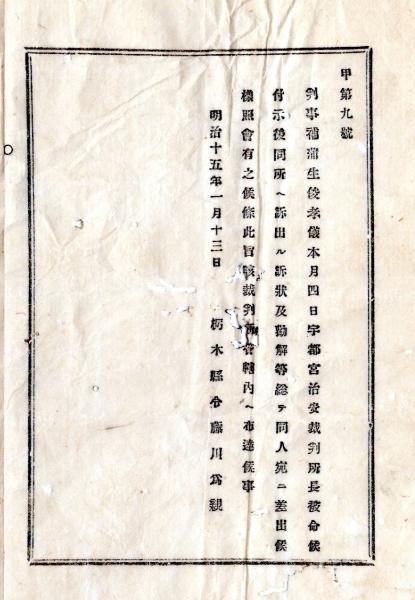 甲第九號
判事補蒲生俊孝儀本月四日宇都宮治安裁判所長被命候
付示後同所ヘ訴出ル訴狀及勸解等總テ同人宛ニ差出候
樣照會有之候條此旨該裁判所管轄內ヘ布達候事
明治十五年一月十三日
栃木縣令藤川爲親